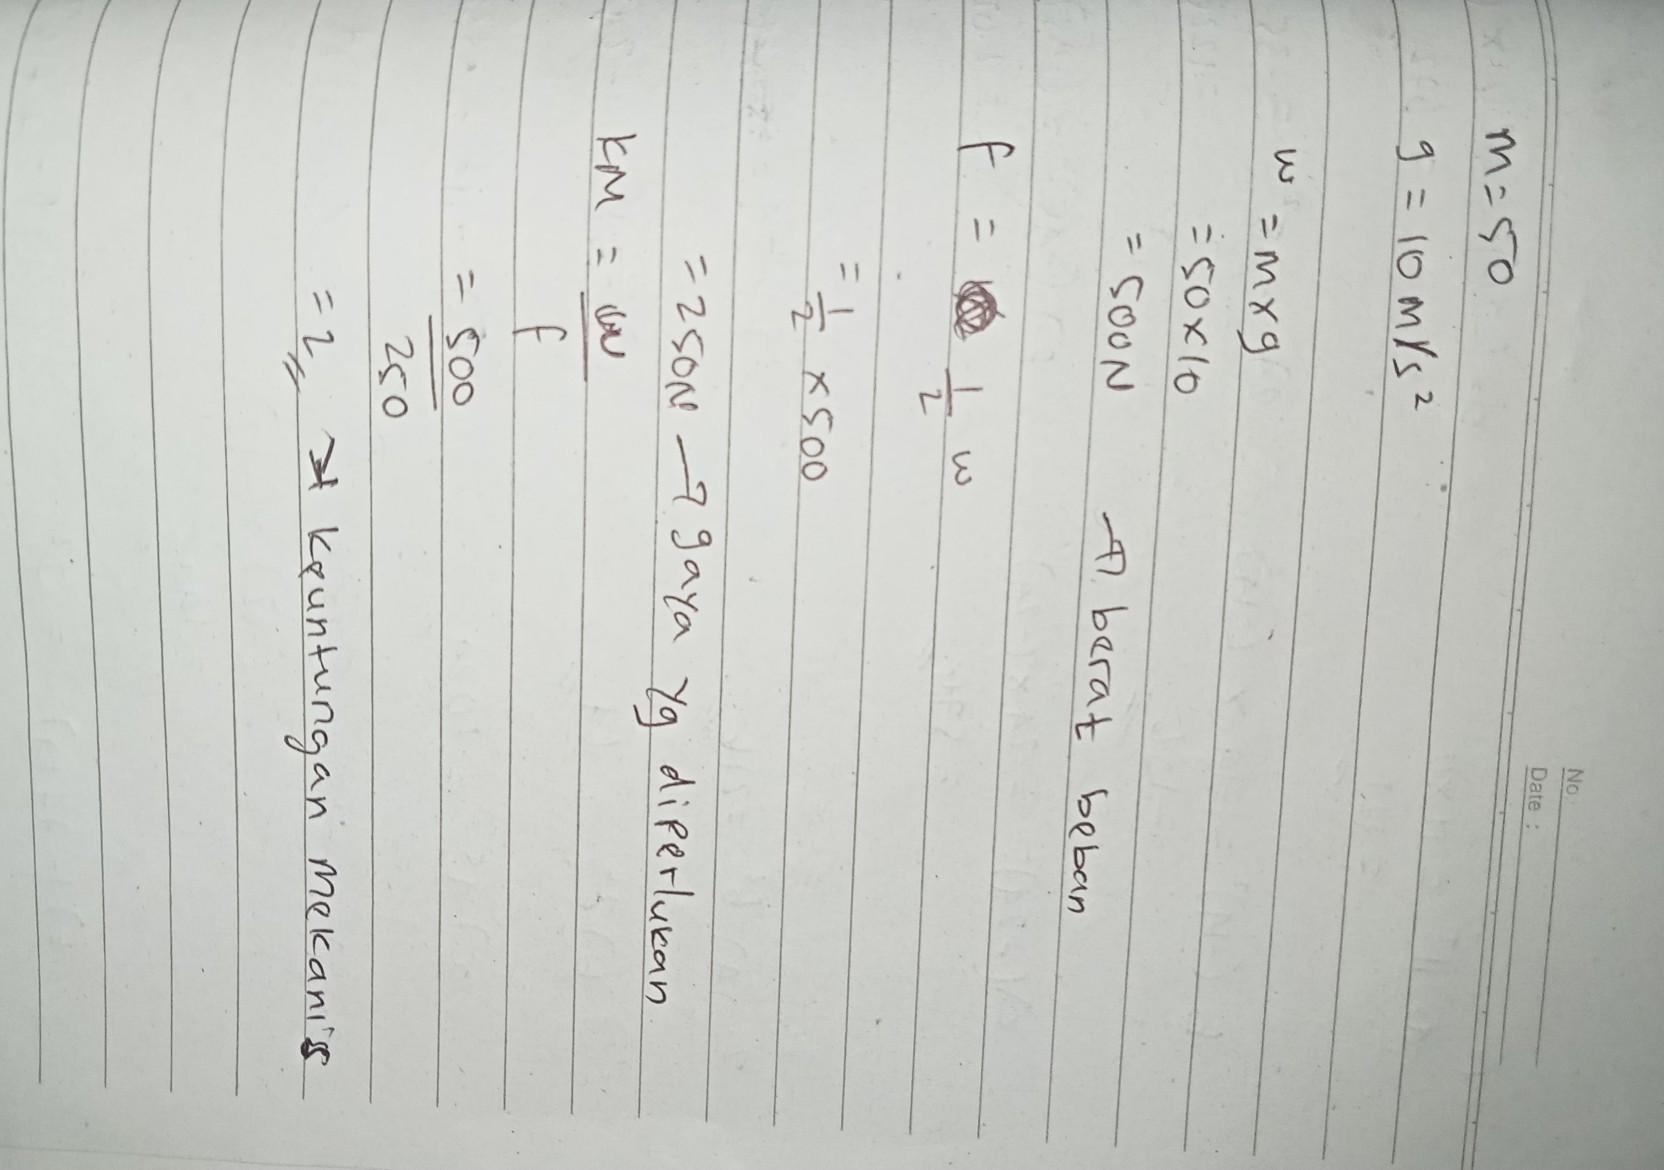 No:
Date :
m = 50
g = 10 m/s²
w = m x g
= 50 x 10
= 500 N → berat beban
f = 1/2 w
= 1/2 x 500
= 250 N → gaya yg diperlukan
KM = w/f
= 500/250
= 2 → keuntungan mekanis